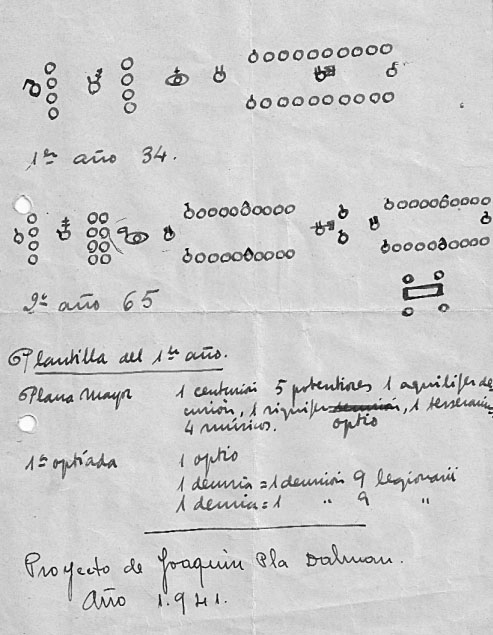 1er año 34.
2º año 65
Plantilla del 1er año.
Plana Mayor 1 centurión 5 potentiores 1 aquilifer de-
curión, 1 signifer decurión, 1 tesserarius
4 músicos. optio
1ª optiada 1 optio
1 decuria = 1 decurión 9 legionarii
1 decuria = 1 " 9 "
Proyecto de Joaquin Pla Dalmau.
Año 1.941.